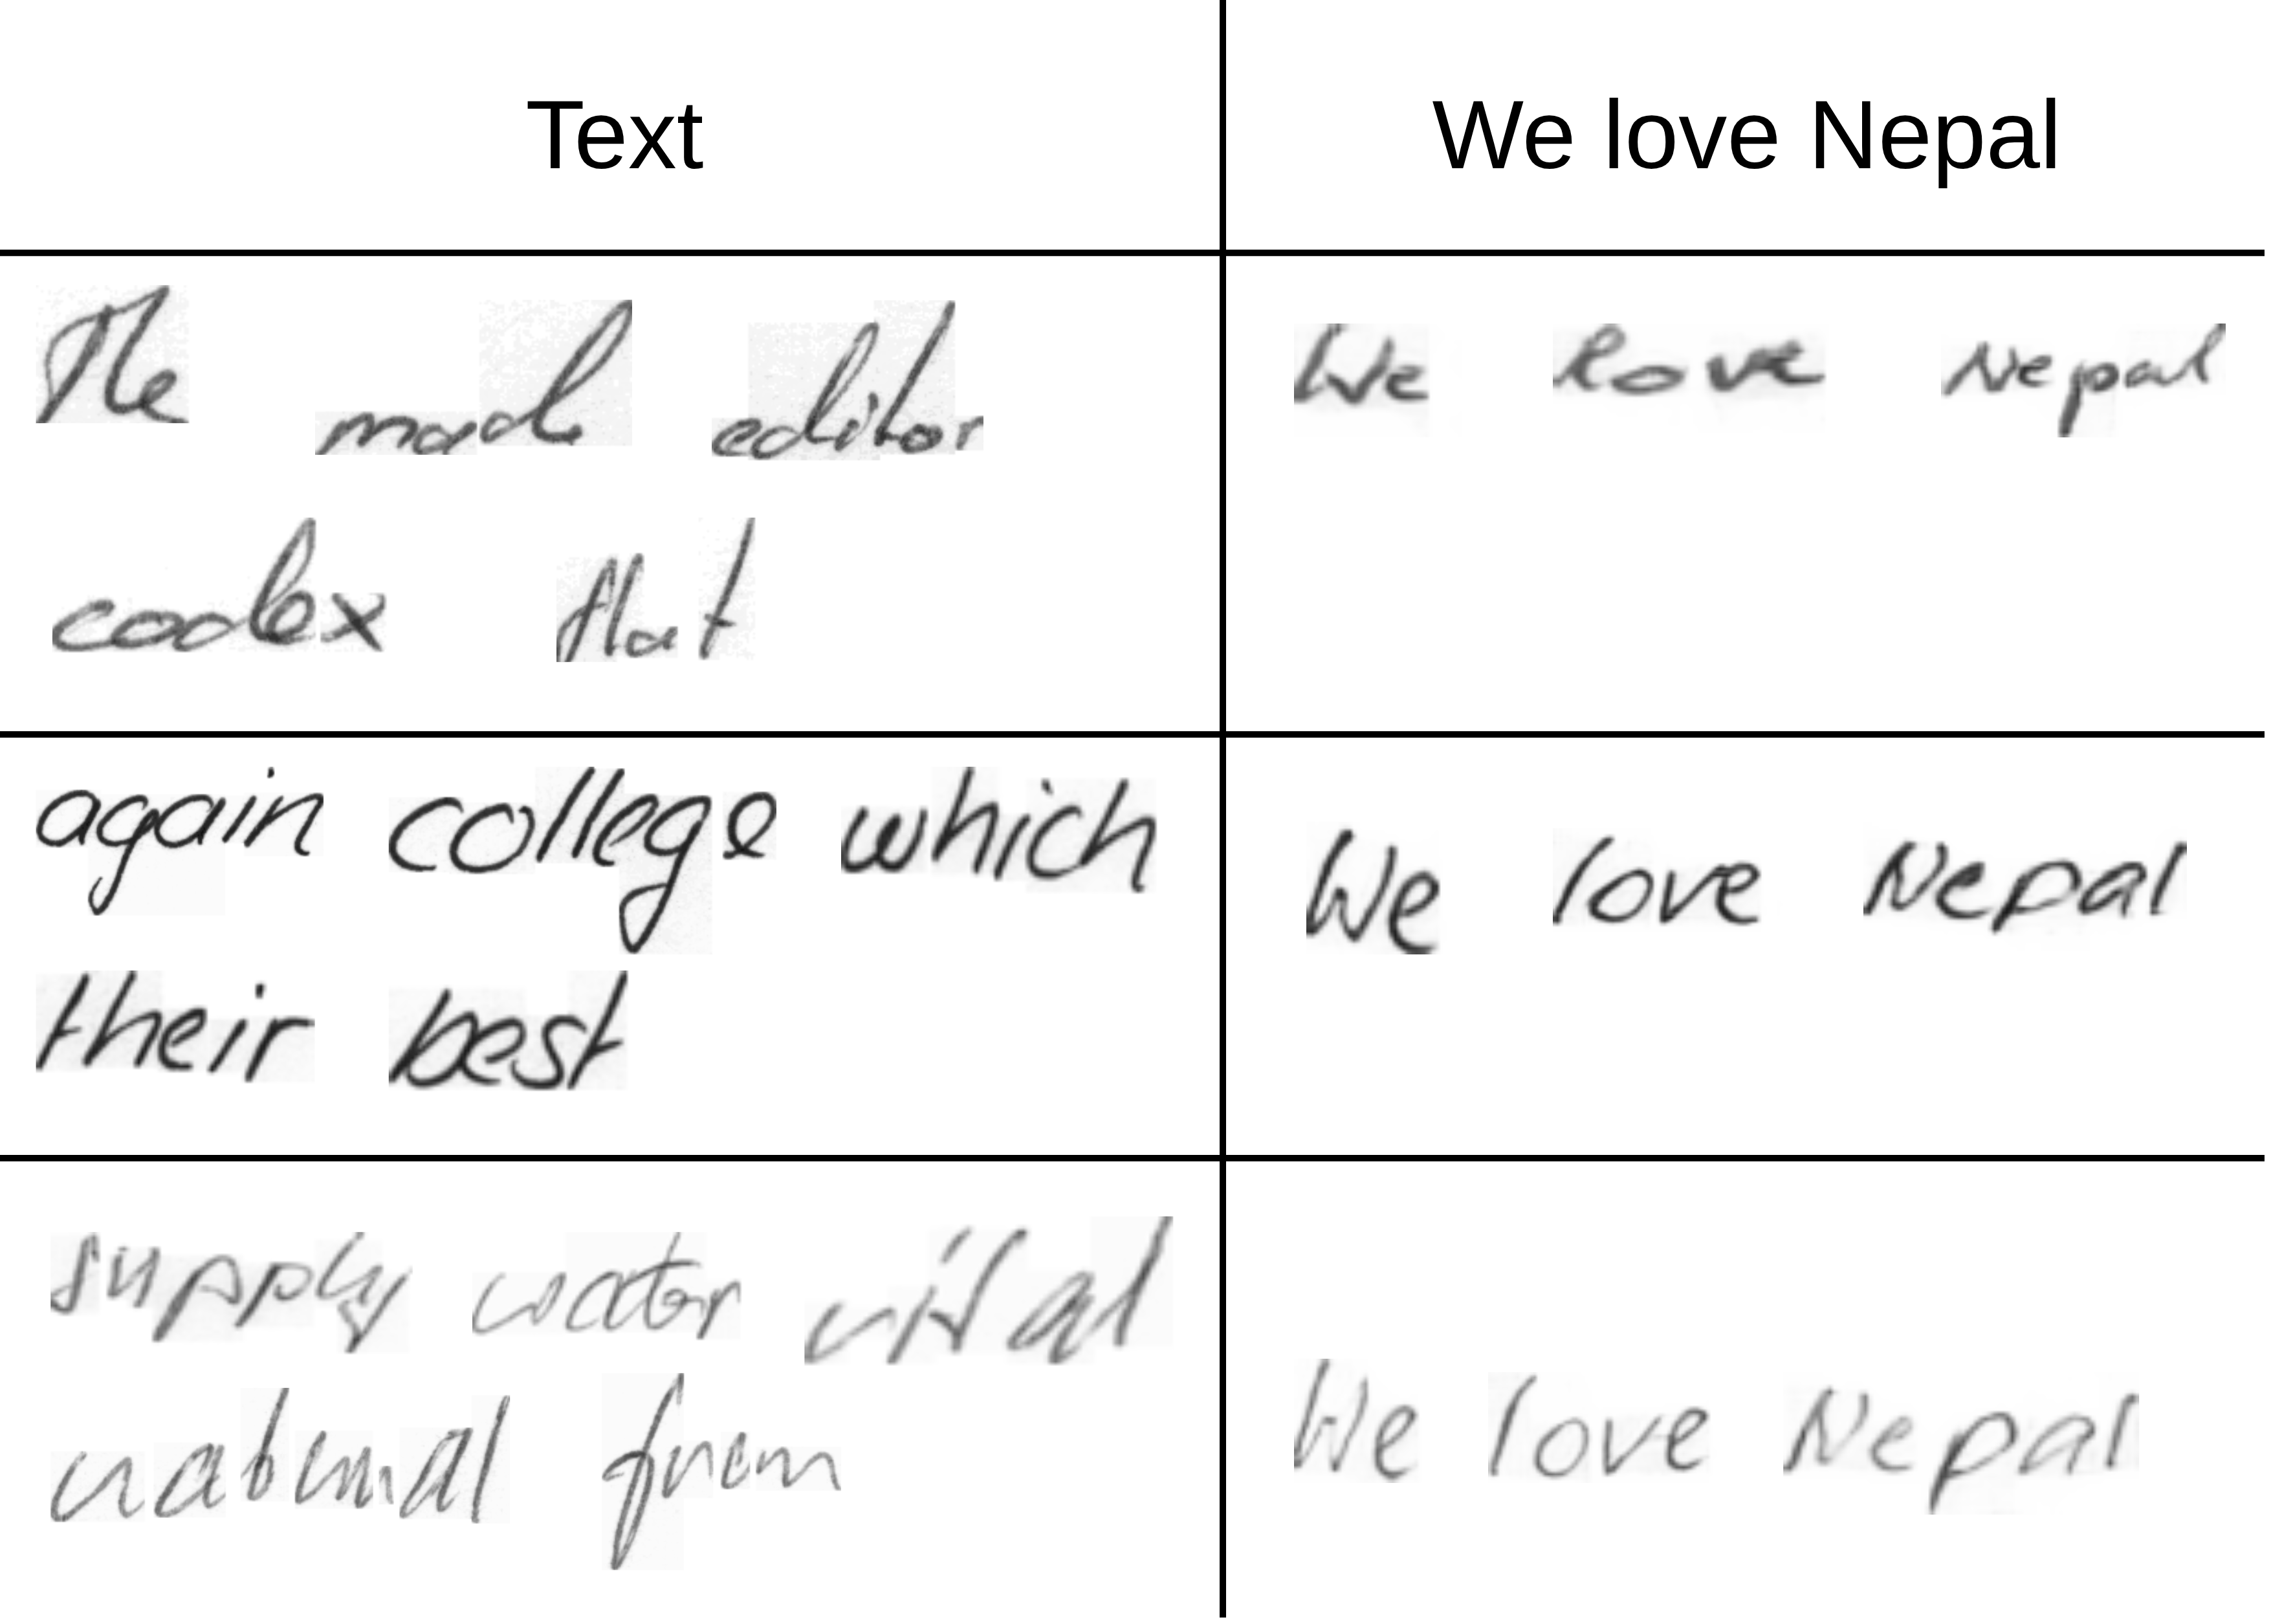 Text
We love Nepal
The made editor
We love Nepal
codex that
again college which
We love Nepal
their best
supply water vital
We love Nepal
natural from